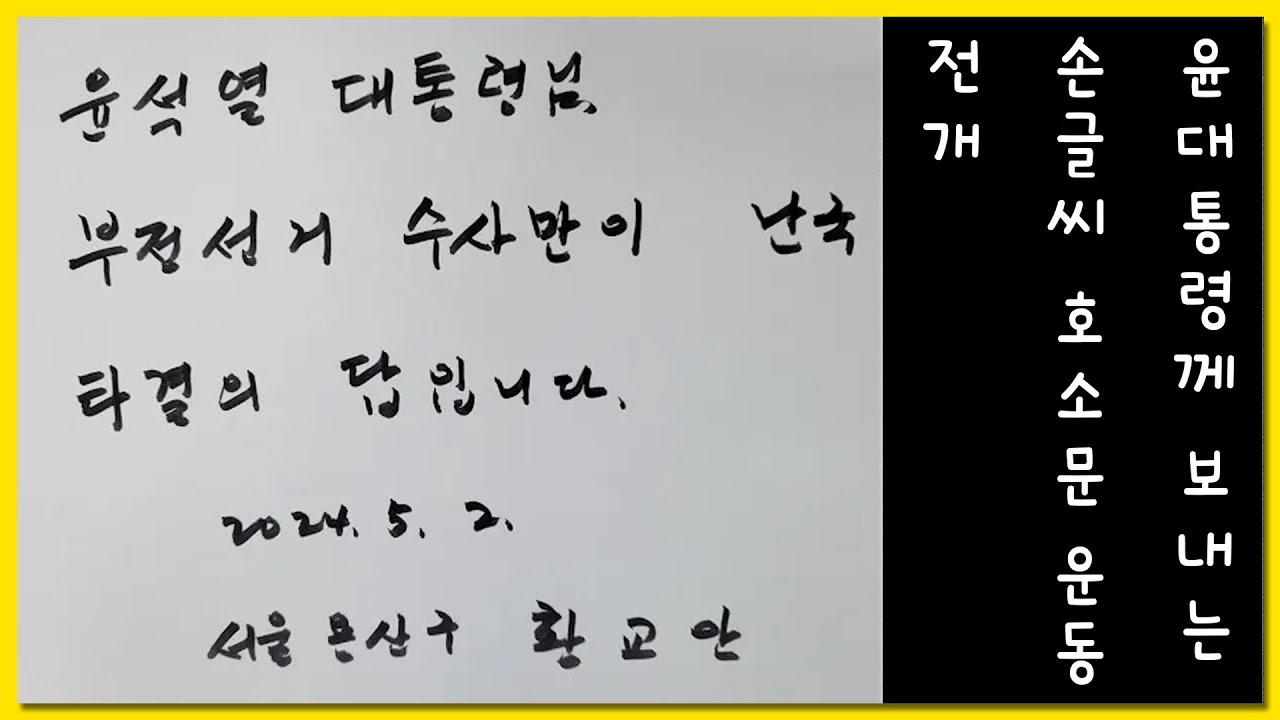 윤석열 대통령님.
부정선거 수사만이 난국
타결의 답입니다.
2024. 5. 2.
서울 용산구 황교안
윤대통령께 보내는
손글씨 호소문 운동
전개